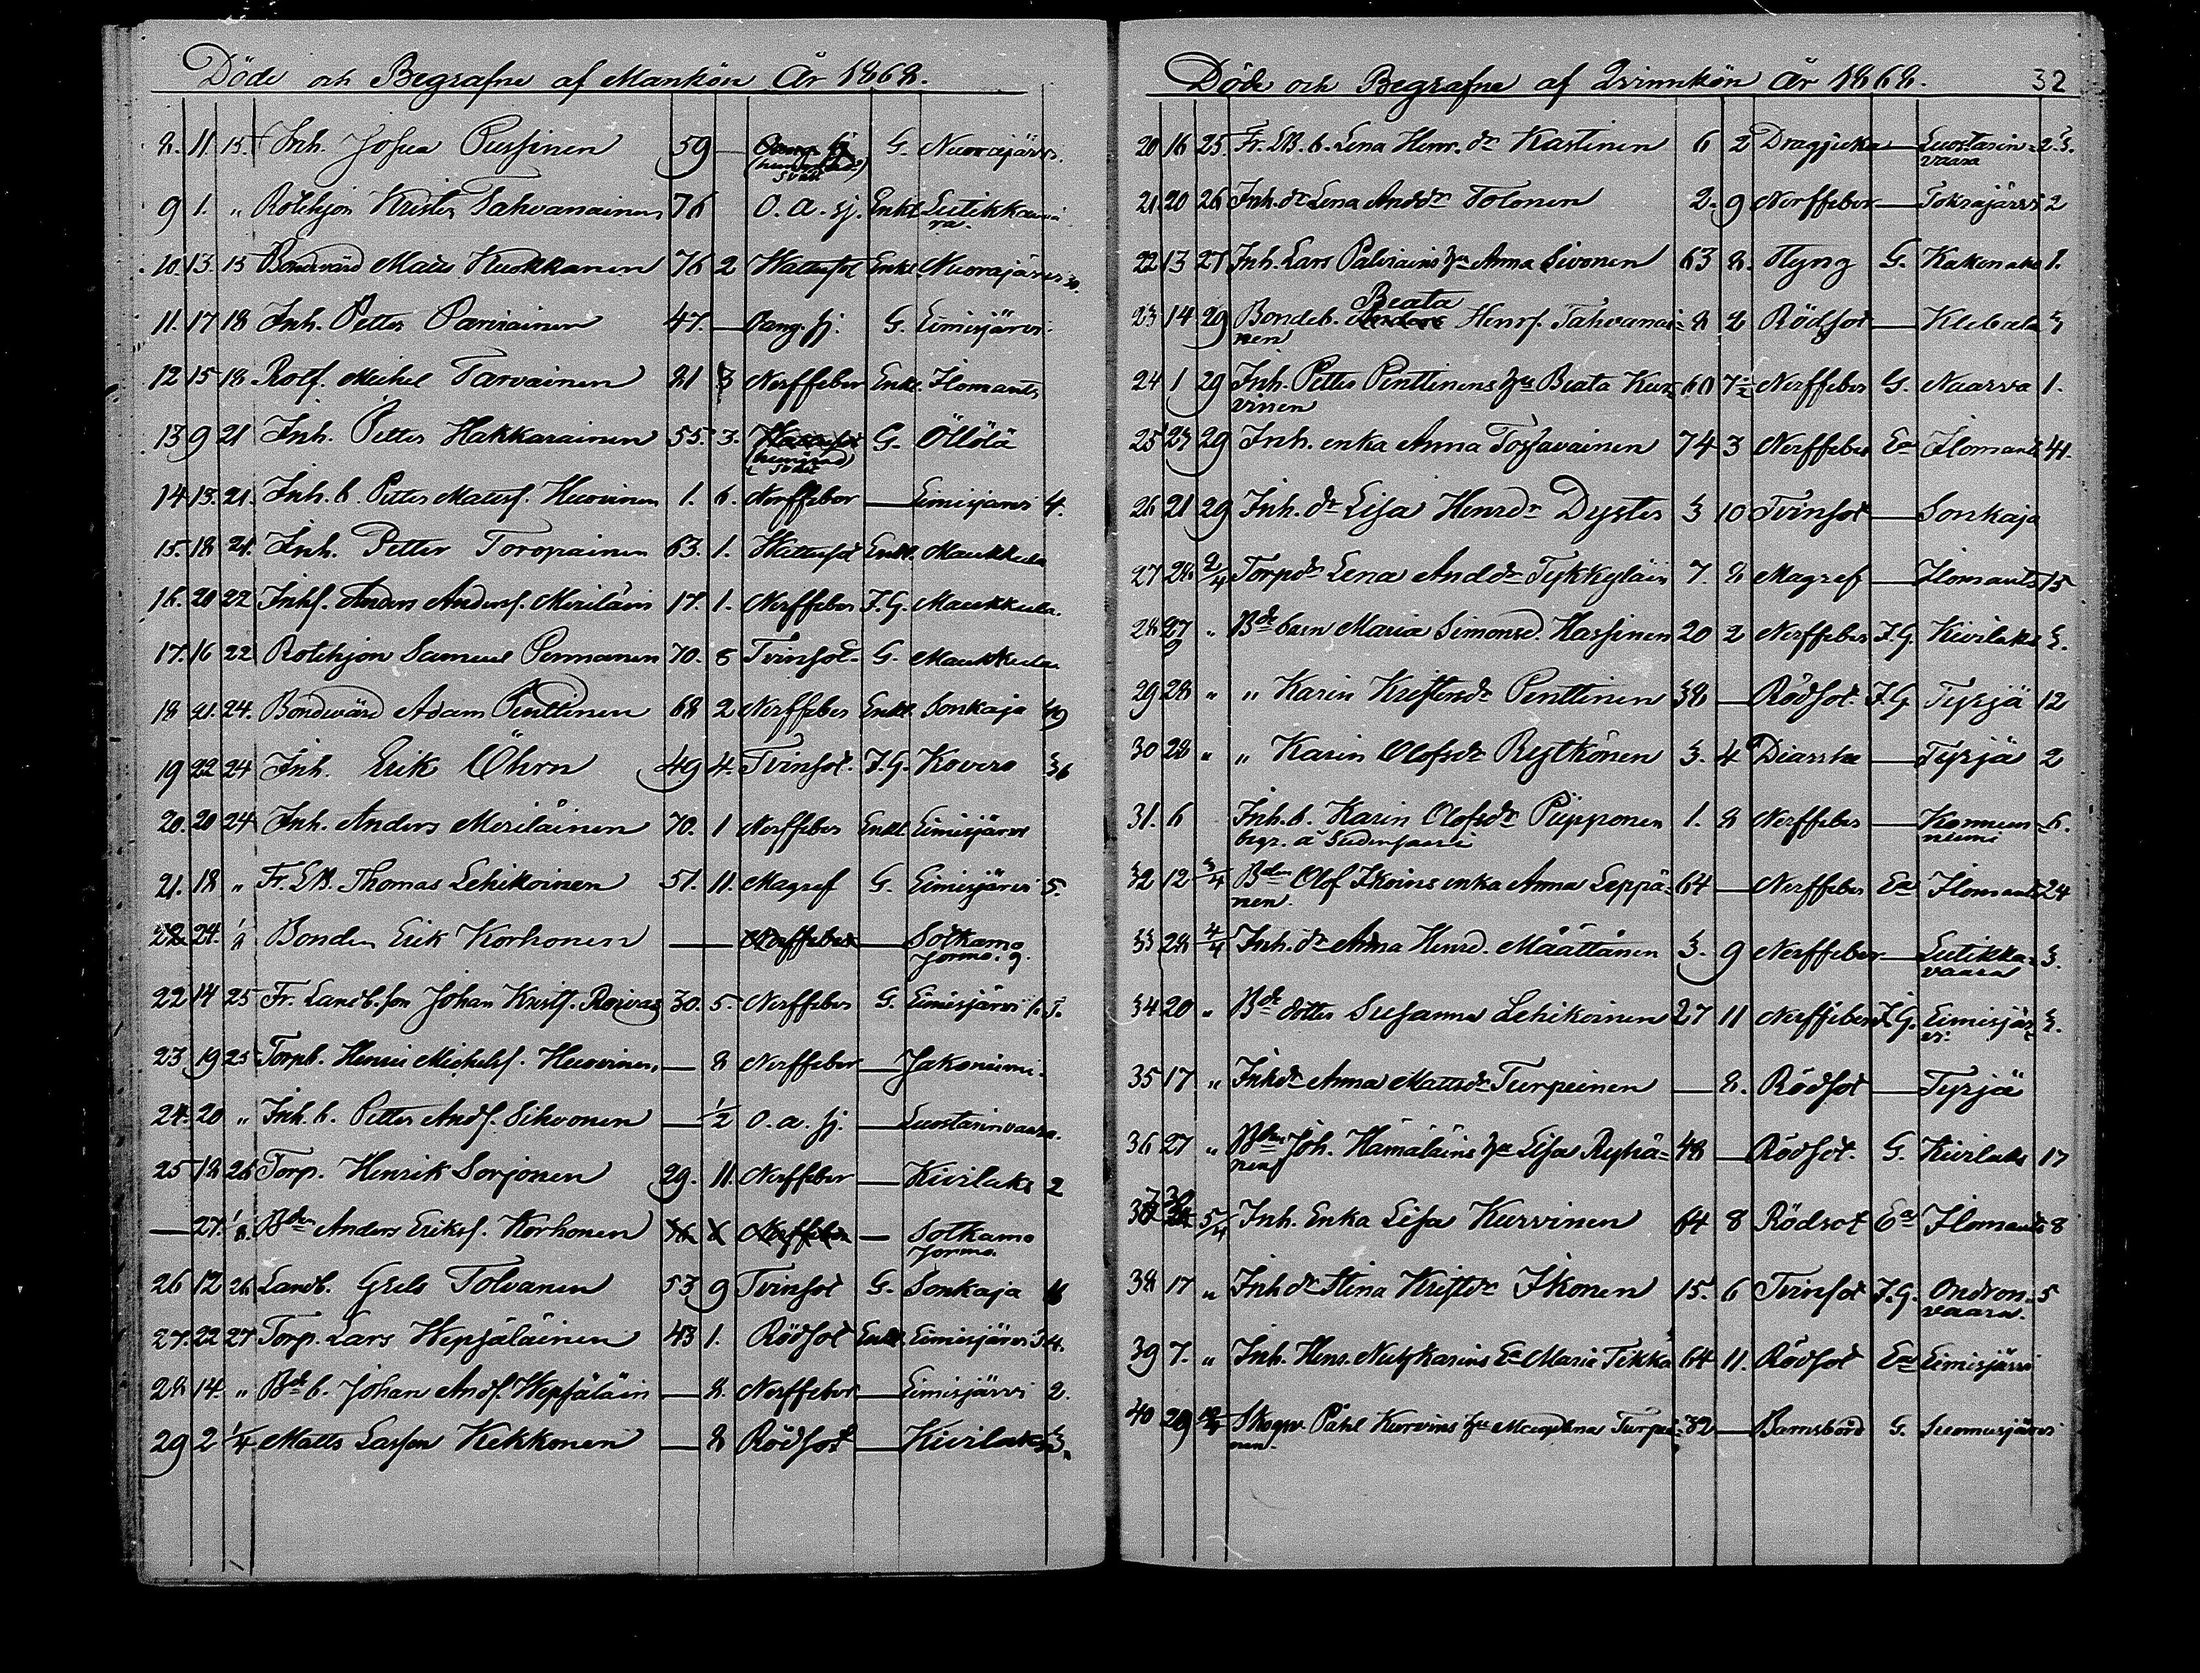 Döde och Begrafne af Mankön År 1868.
8. 11. 15. Inh. Josua Pussinen 59 — G. Nuorajärvi.
9 1. " Rotehjon Krister Tahvanainen 76 O. a. sj. Enkl. Leitikkavaa
ra.
10. 13. 15 Bondevärd Mats Kuokkanen 76 2 Hattsot Enkl Nuorajärvi
11. 17 18 Inh. Petter Parviainen 47. — Bang. sj. G. Eimisjärvi
12 15 18 Rotf. Michel Tarvainen 21 3 Nerffeber Enkl. Ilomants
13 9 21 Inh. Petter Hakkarainen 55. 3. G. Öllölä
14 13. 21. Inh. b. Petter Matsf. Huovinen 1. 6. Nerffeber — Eimisjärvi 4.
15. 18 21. Inh. Petter Toropainen 63. 1. Hattsot Enkl. Maukkula
16. 20 22 Inhf. Anders Andersf. Meriläin 17. 1. Nerffeber J. G. Maukkula.
17. 16 22 Rotehjon Samuel Permanen 70. 8 Tvinsot G. Maukkula
18 21. 24. Bondevärd Adam Penttinen 68 2 Nerffeber Enkl. Sonkaja
19 22 24 Inh. Erik Öhrn 49 4. Tvinsot. J. G. Kovero 36
20. 20 24 Inh. Anders Meriläinen 70. 1 Nerffeber Enkl. Eimisjärvi
21. 18 " Fr. LB. Thomas Lehikoinen 51. 11. Magref G. Eimisjärvi 5.
22. 24. Bonden Erik Korhonen — — Nerffeber — Sotkamo
Jormo. 9.
22 14 25 Fr. Landb. son Johan Kristf. Roivas 30. 5. Nerffeber G. Eimisjärvi
23 19 25 Torpb. Henric Michelsf. Huovinen, — 8 Nerffeber — Jakonimi.
24. 20 " Inh. b. Petter Andf. Sihvonen — 1/2 O. a. sj. — Luostarinvaara.
25 18 26 Torp. Henrik Sorjonen 29. 11. Nerffeber — Kivilaks 2
— 27. Bden Anders Eriksf. Korhonen Nerffeber — Sotkamo
Jormo.
26 12 26 Landb. Grels Tolvanen 53 9 Tvinsot G. Sonkaja
27. 22 27 Torp. Lars Hepsäläinen 43 1. Rödsot Enkl. Eimisjärvi
28 14. " Bde b. Johan Andf. Hepsäläin — 8. Nerffeber — Eimisjärvi 2.
29 2 1/4 Matts Larsson Kekkonen — 8 Rödsot — Kivilaks 3.
Döde och Begrafne af Qvinnkön År 1868. 32
20 16 25. Fr. LB. b. Lena Henr. dr Kastinen 6 2 Dragsjuka — Luostarin=
vaara
21. 20 26 Inh. dr Lena Anddr Tolonen 2. 9 Nerffeber — Tokrajärvi 2
22 13 27 Inh. Lars Palviains hu Anna Sivonen 63 8. Flyng G. Kakonaho 1.
Beata
23 14 29 Bondeb. Henrs. Tahvanai= 8 2 Rödsot — Klebala 3
nen
24 1 29 Inh. Petter Penttinens hu Beata Kur= 60 Nerffeber G. Naarva 1.
vinen
25 23 29 Inh. enka Anna Torsavainen 74 3 Nerffeber Ea Ilomants 41.
26 21 29 Inh. dr Lisa Henrdr Dyster 3 10 Tvinsot — Sonkaja
27 28. 2/4 Torpdr Lena Anddr Tykkyläin 7. 8 Magref — Ilomants 15
28 27 " Bde barn Maria Simonsd. Hassinen 20 2 Nerffeber J. G. Kivilaks 3.
29 28 " " Karin Kristersdr Penttinen 38 — Rödsot. J. G. Tyrjä 12
30 28 " " Karin Olofsdr Rytkönen 3. 4 Diarrhe — Tyrjä 2
31. 6 Inh. b. Karin Olofsdr Piipponen 1. 8 Nerffeber — Konnun= 6.
begr. å niemi
32 12 3/4 Bden Olof Ikoins enka Anna Leppä= 64 — Nerffeber Ea Ilomants 24
nen.
33 28 4/4 Inh. dr Anna Henrd. Määttänen 3. 9 Nerffeber — Leitikka= 3.
vaara
34 20 " Bde dotter Susanna Lehikoinen 27 11 Nerffeber J. G. Eimisjär= 3.
vi.
35 17 " Inhdr Anna Mattsdr Turpeinen — 8. Rödsot — Tyrjä
36 27 " Bden Joh. Hämäläins hu Lisa Ryhä= 48 — Rödsot. G. Kivilaks 17
nen
37 5/4 Inh. Enka Lisa Kurvinen 64 8 Rödsot Ea Ilomants 8
38 17 " Inh dr Stina Kristdr Ikonen 15. 6 Tvinsot J. G. Ondron= 5
vaara.
39 7. " Inh. Henr. Nuutkarins Ea Maria Tikka 64 11. Rödsot Ea Eimisjärvi
40 29 Skogv. Påhl Kurvins hu Magdlena Turpei= 32 — Barnsbörd G. Ilomusjärvi
nen.